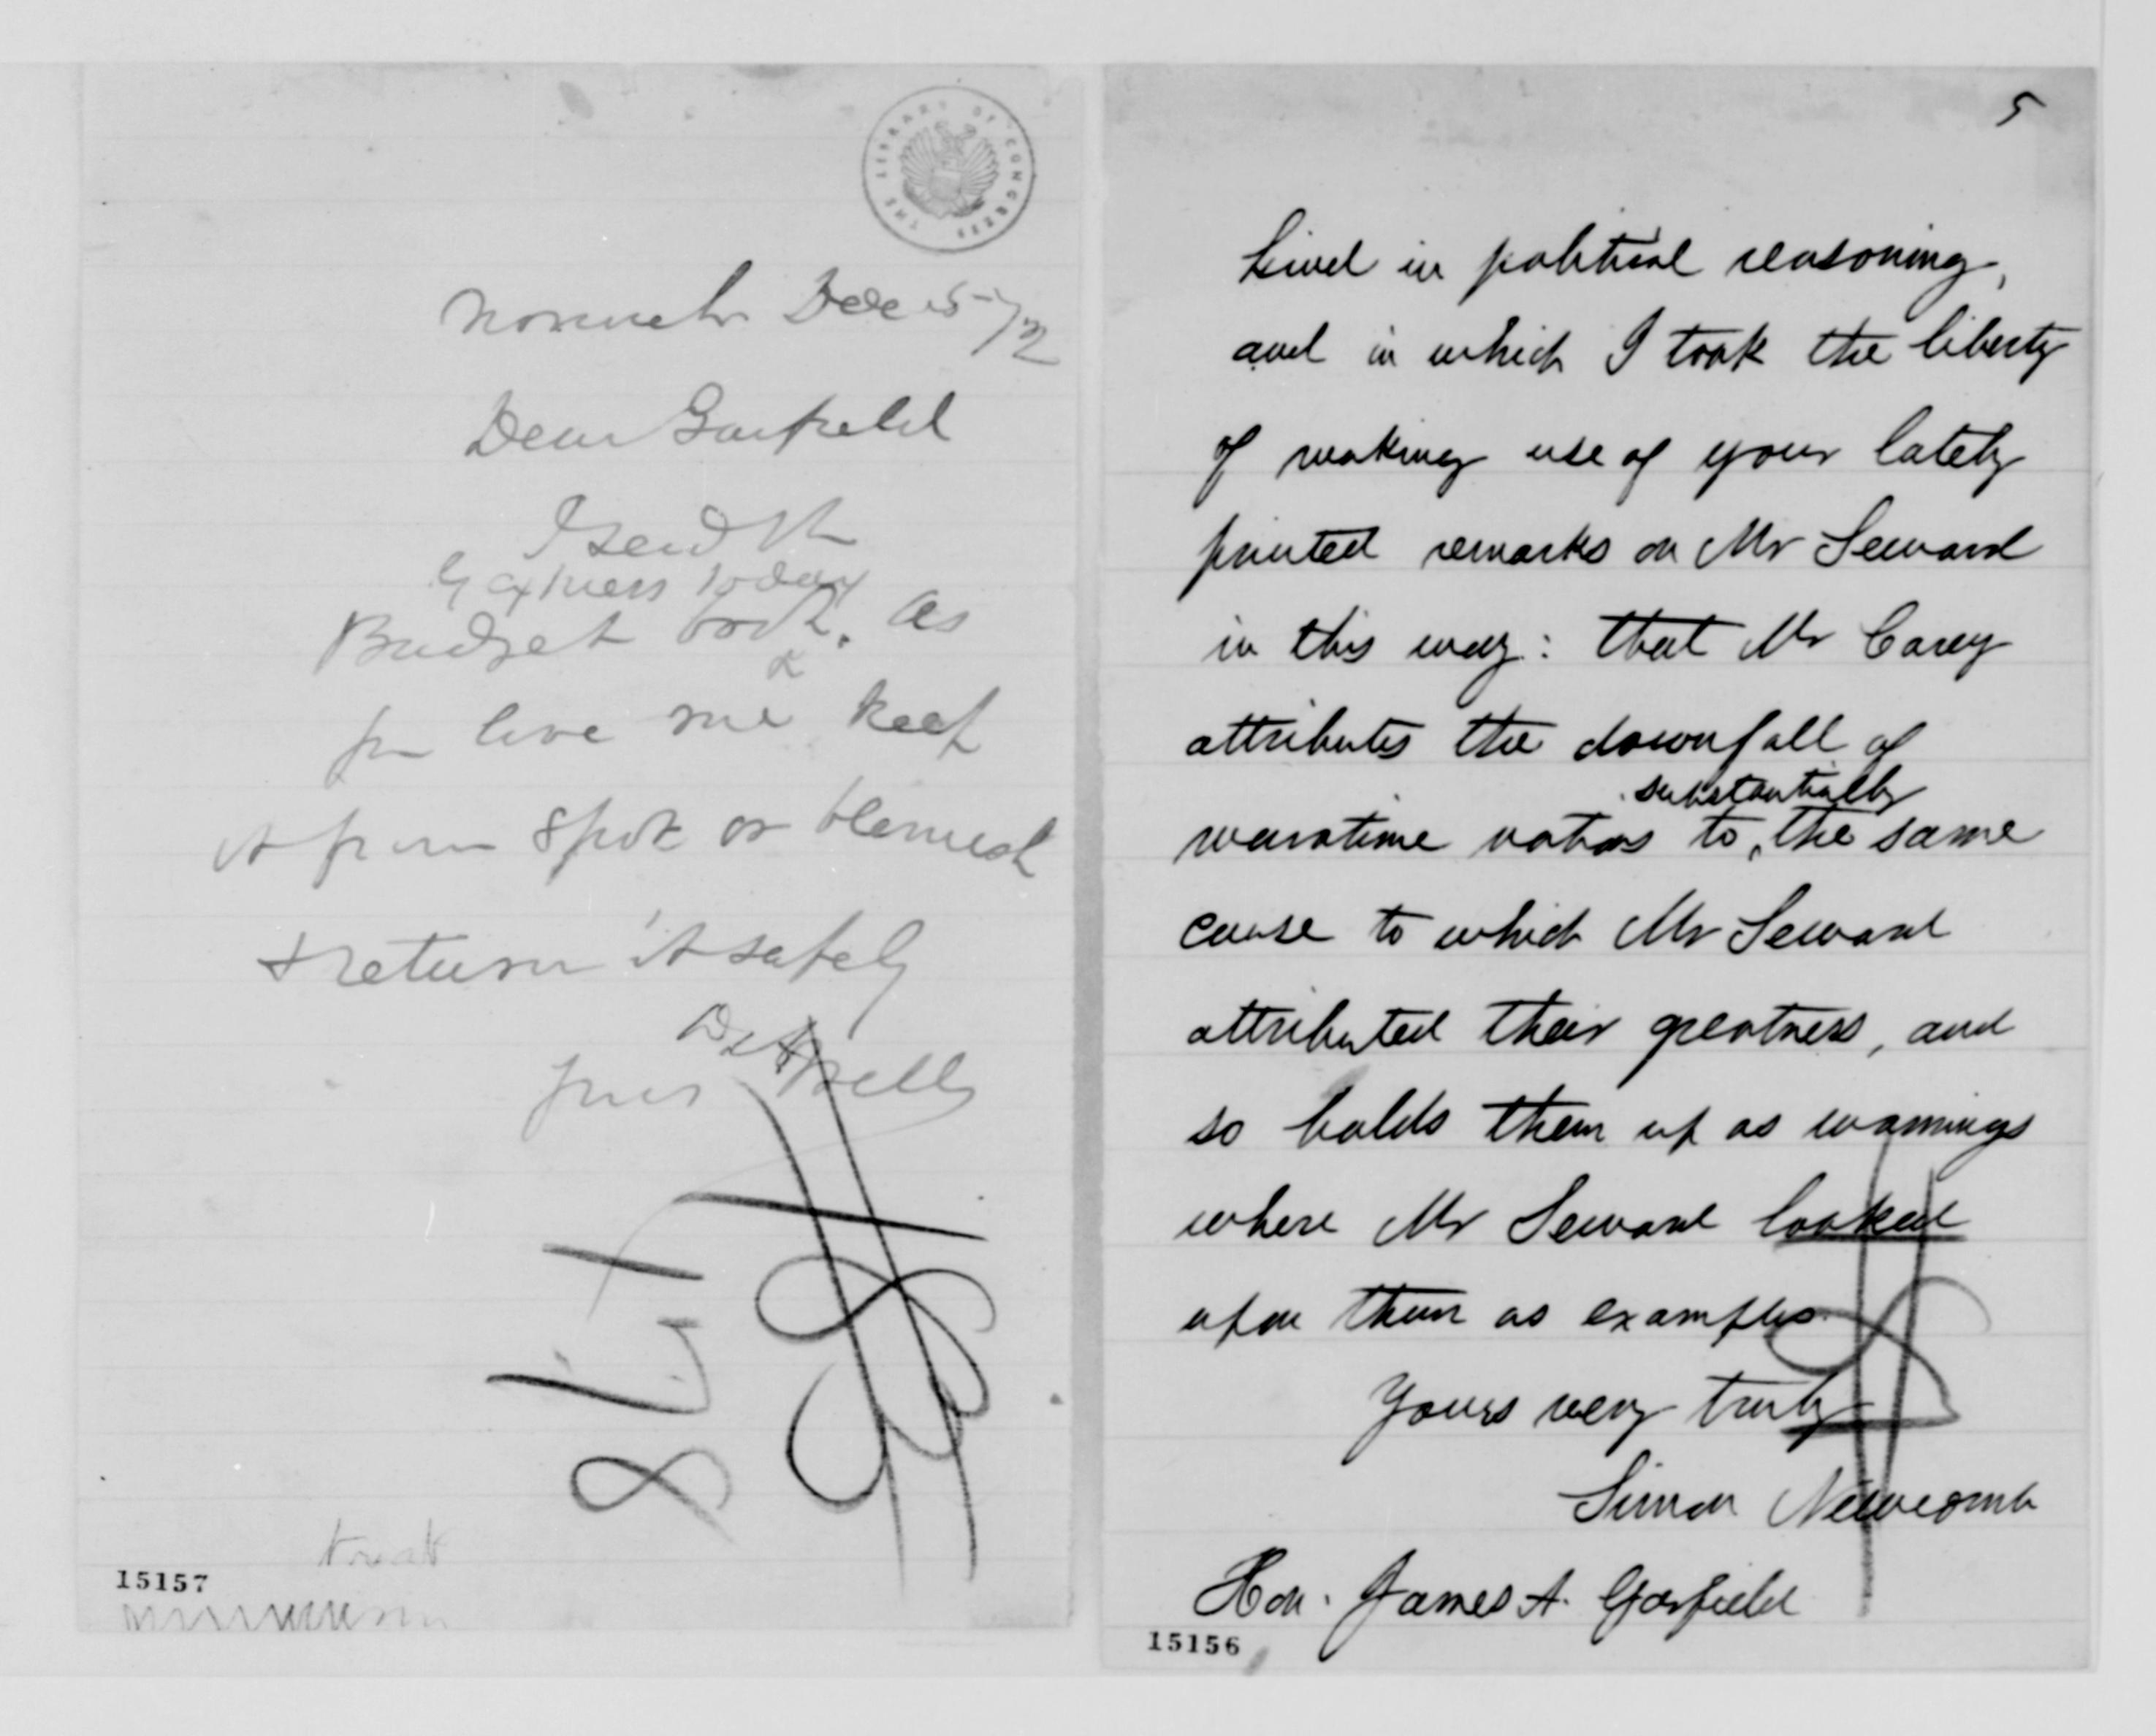 THE LIBRARY OF CONGRESS
Norwich Dec 15-/72
Dear Garfield
I send the
by express today
Budget book. As
you love me & keep
it from spot or blemish
& return it safely
Yours D. A. Wells
15157
5
kind in political reasoning,
and in which I took the liberty
of making use of your lately
printed remarks on Mr Seward
in this way: that Mr Carey
attributes the downfall of
substantially
maratime nations to, the same
cause to which Mr Seward
attributed their greatness, and
so holds them up as warnings
where Mr Seward looked
upon them as examples.
Yours very truly
Simon Newcomb
Hon. James A. Garfield
15156